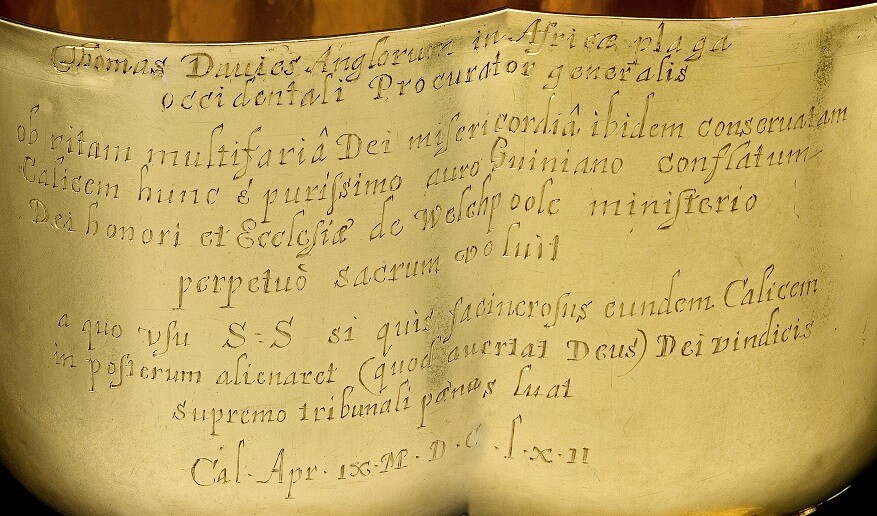 Thomas Davies Anglorum in Africæ plaga
occidentali Procurator generalis
ob vitam multifariâ Dei misericordiâ ibidem conseruatam
Calicem hunc é purissimo auro Guiniano conflatum
Dei honori et Ecclesiæ de Welchpoole ministerio
perpetuò sacrum voluit
a quo vsu S=S si quis facinerosus eundem Calicem
in posterum alienaret (quod auertat Deus) Dei vindicis
supremo tribunali pœnas luat
Cal· Apr· ıx· M· D· C· l· x· ıı